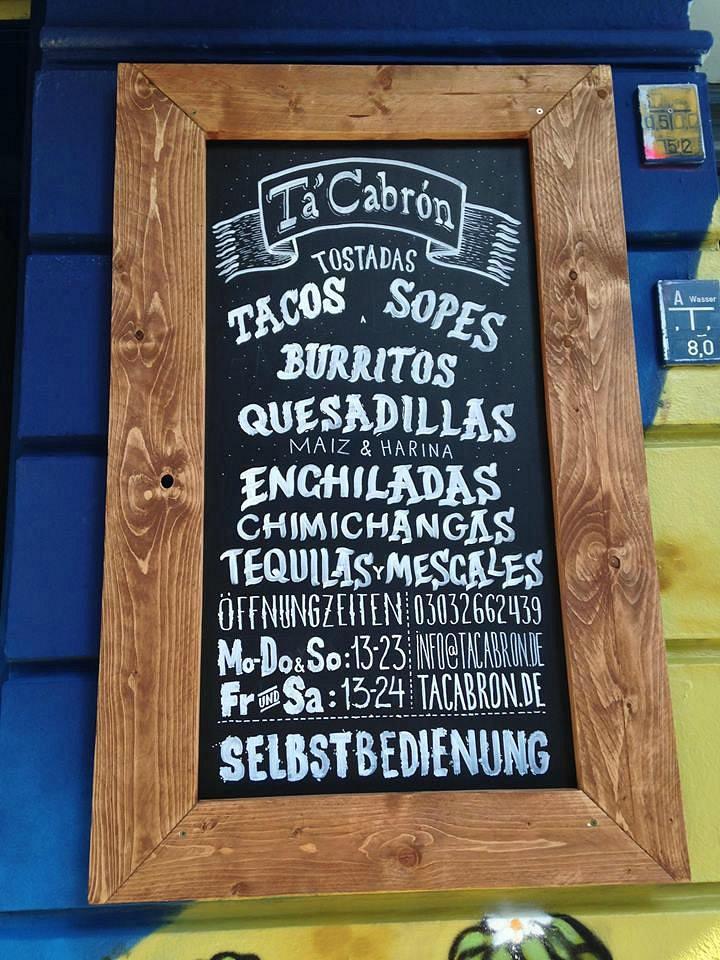 Ta'Cabrón
TOSTADAS
TACOS SOPES
BURRITOS
QUESADILLAS
MAIZ & HARINA
ENCHILADAS
CHIMICHANGAS
TEQUILAS Y MESCALES
ÖFFNUNGZEITEN 03032662439
Mo-Do & So: 13-23 INFO@TACABRON.DE
Fr UND Sa: 13-24 TACABRON.DE
SELBSTBEDIENUNG
A Wasser
8,0